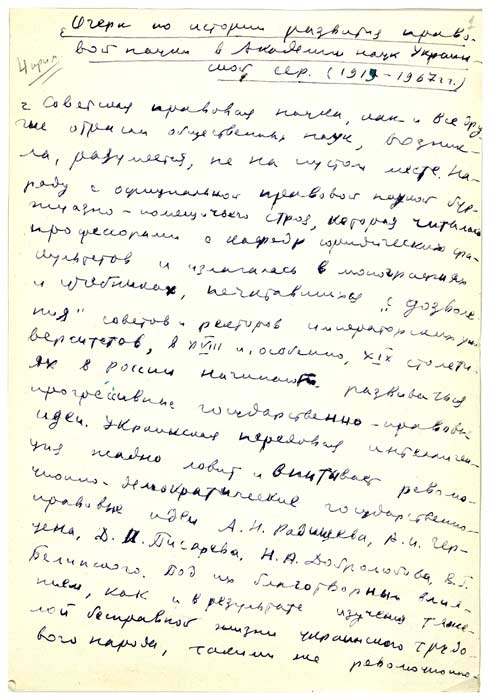 Очерк по истории развития право-
вой науки в Академии наук Украин-
ской сср. (1919-1967 гг.)
Советская правовая наука, как и все дру-
гие отрасли общественных наук, возник-
ла, разумеется, не на пустом месте. На-
ряду с официальной правовой наукой бур-
жуазно-помещичьего строя, которая читалась
профессорами с кафедр юридических фа-
культетов и излагалась в монографиях
и учебниках, печатавшихся "с дозволе-
ния" советов и ректоров императорских уни
верситетов, в XVIII и, особенно, XIX столети-
ях в России начинают развиваться
прогрессивные государственно-правовые
идеи. Украинская передовая интеллиген-
ция жадно ловит и впитывает револю-
ционно-демократические государственно-
правовые идеи А.Н. Радищева, А.И. Гер-
цена, Д.И. Писарева, Н.А. Добролюбова, В.Г.
Белинского. Под их благотворным влия-
нием, как и в результате изучения тяже-
лой бесправной жизни украинского трудо-
вого народа, такими же революционно-